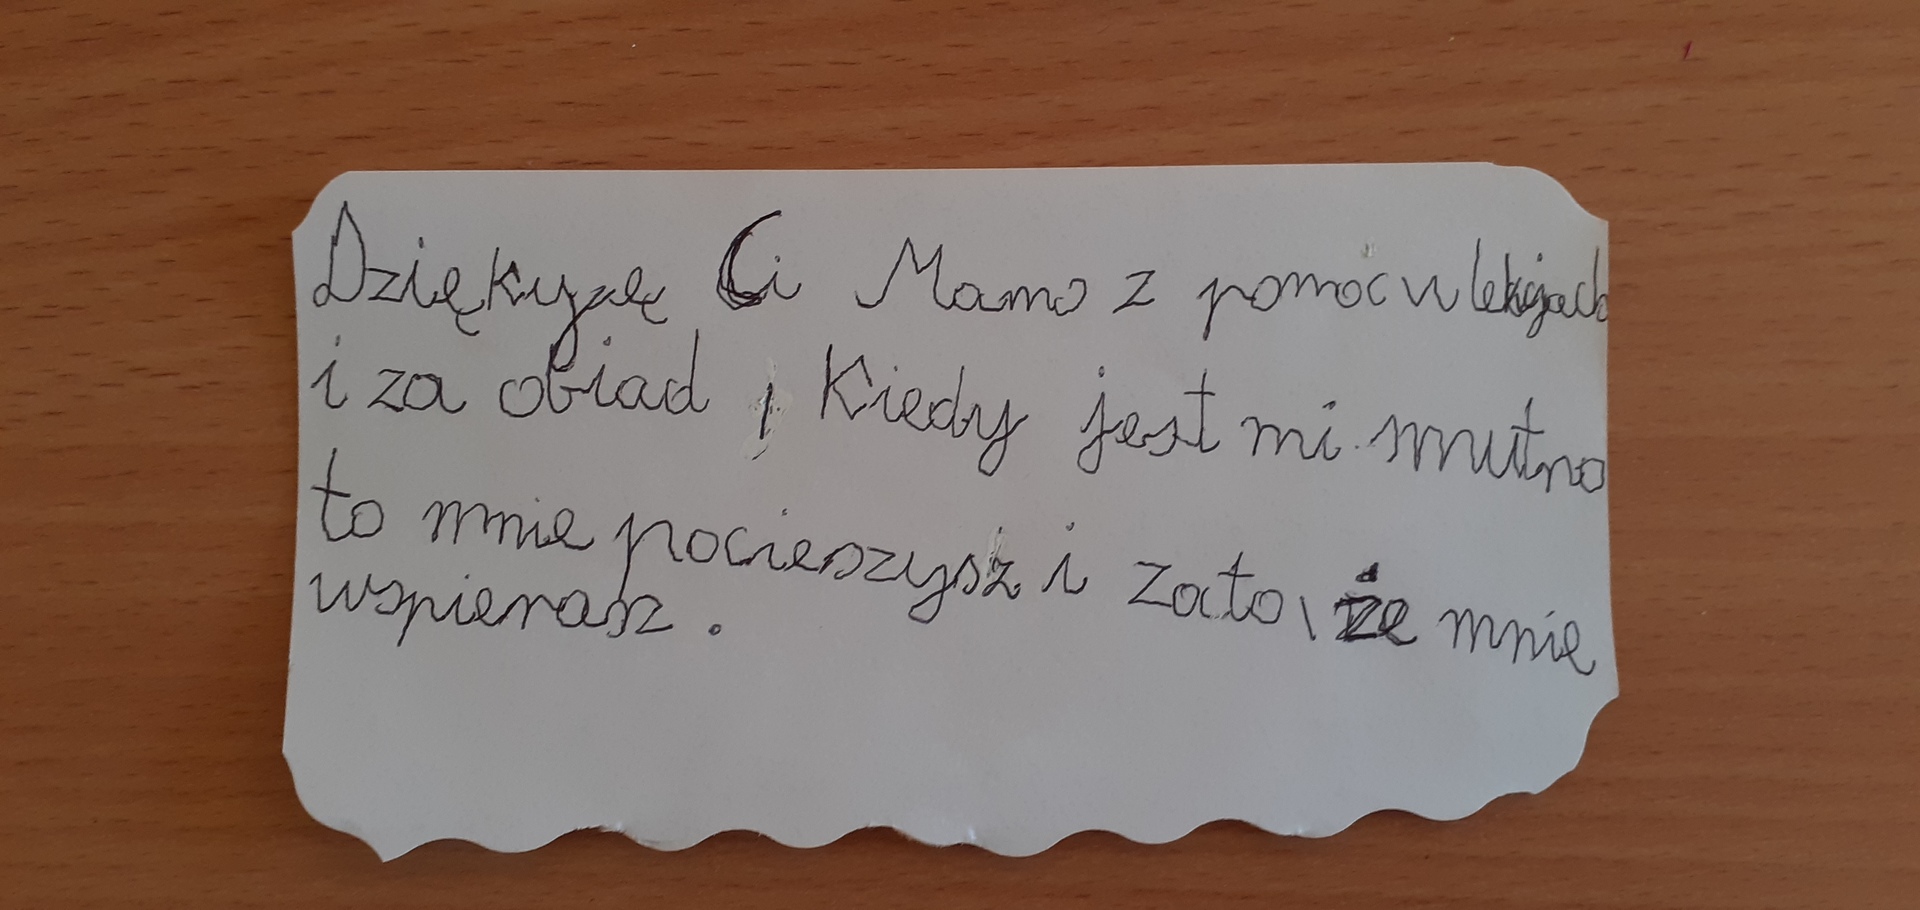 Dziękyję Ci Mamo z pomoc w lekcjach
i za obiad, Kiedy jest mi smutno
to mnie pocieszysz i zato, że mnie
wspierasz.